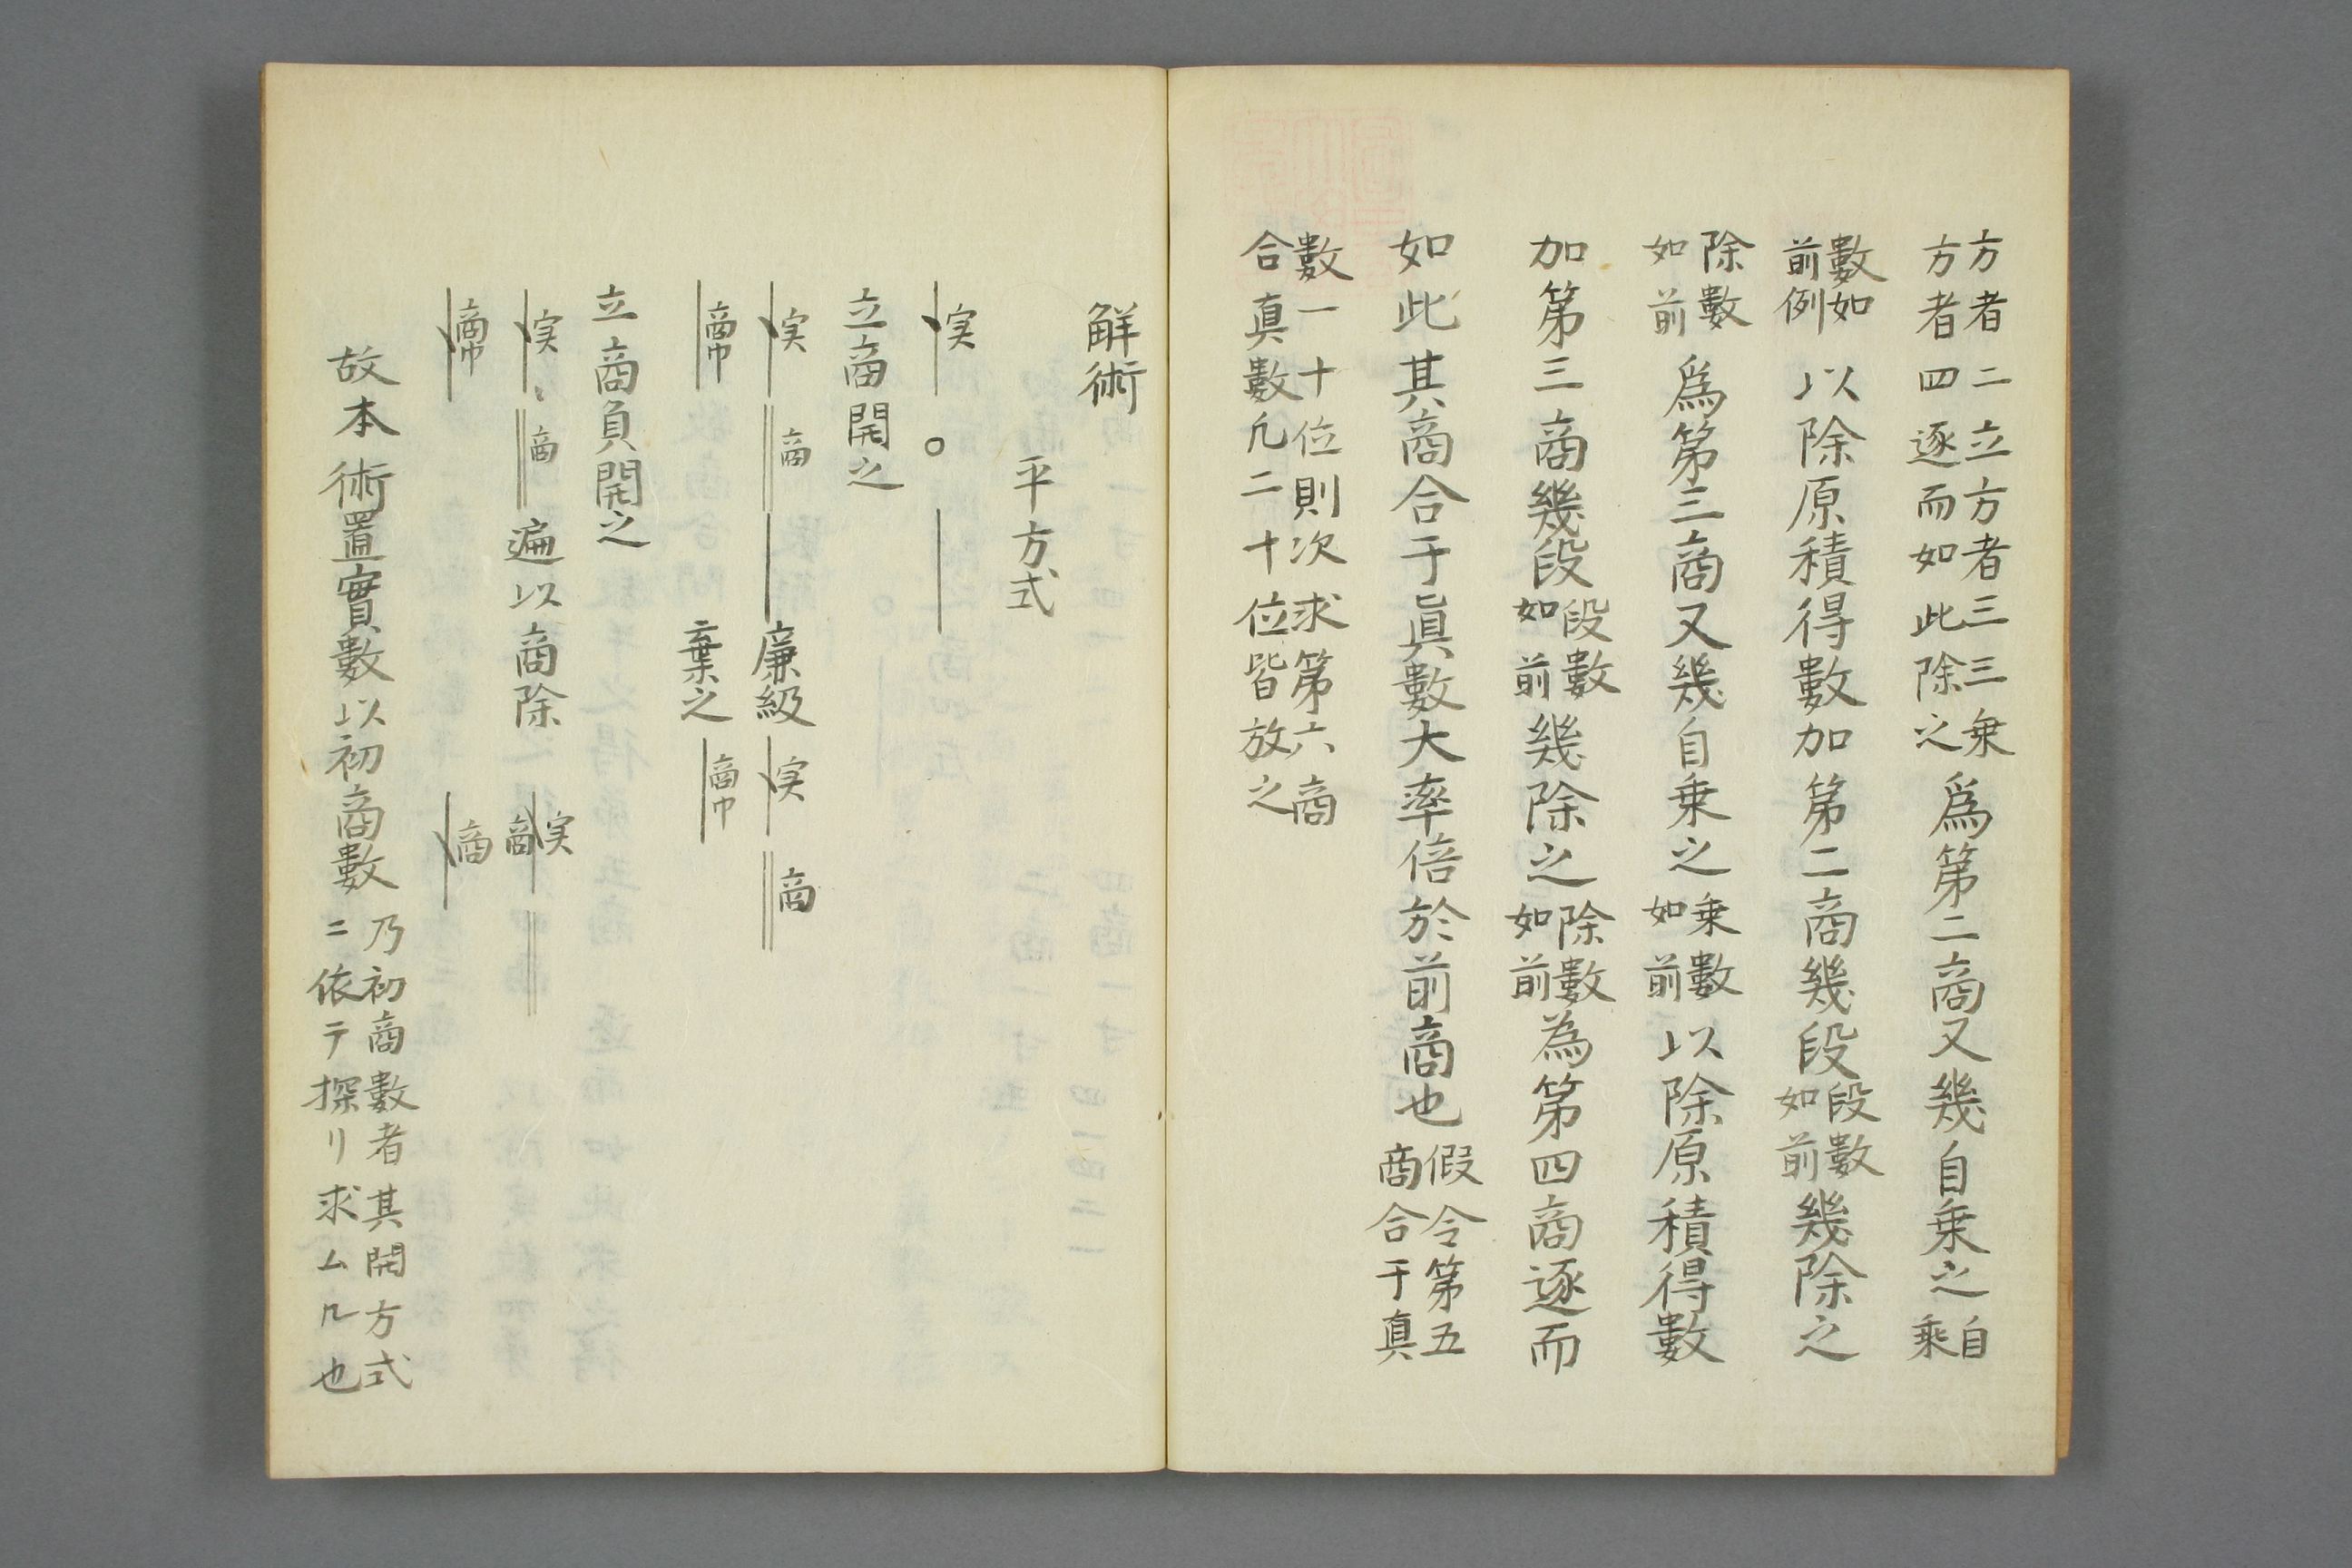 方者二立方者三三乗
方者四逐而如此除之
爲第二商又幾自乗之
自
乘
數如
前例
以除原積得數加第二商幾段
段數
如前
幾除之
除數
如前
爲第三商又幾自乗之
乗數
如前
以除原積得數
加第三商幾段
段數
如前
幾除之
除數
如前
為第四商逐而
如此其商合于眞數大率倍於前商也
假令第五
商合于真
數一十位則次求第六商
合真數凢二十位皆放之
解術
平方式
実
○
立商開之
実
商
廉級
実
商
商巾
棄之
商巾
立商負開之
実
商
遍以商除
実
商
商巾
商
故本術置實數以初商數
乃初商數者其開方式
ニ依テ探リ求ムル也